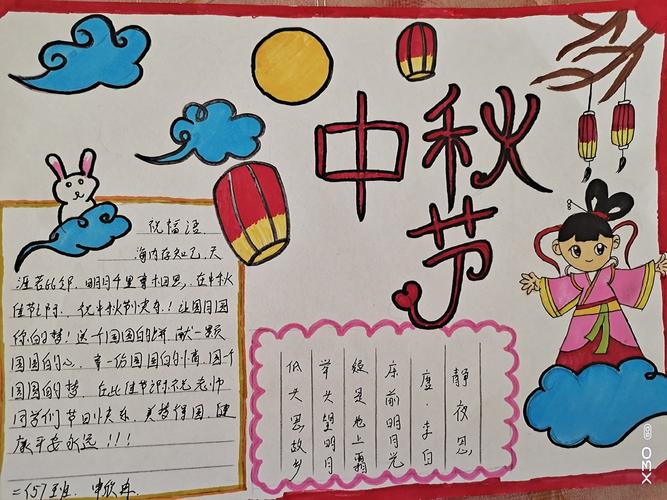 中秋节
祝福语
海内存知己,天
涯若比邻,明月千里寄相思,在中秋
佳节之际,祝中秋节快乐!让圆月圆
你的梦!送一个圆圆的饼,献一颗
圆圆的心,享一份圆圆的情,圆一个
圆圆的梦,在此佳节 老师
同学们节日快乐,美梦得圆,健
康平安永远!!!
二(5)班
静夜思
唐 李白
床前明月光
疑是地上霜
举头望明月
低头思故乡
X30